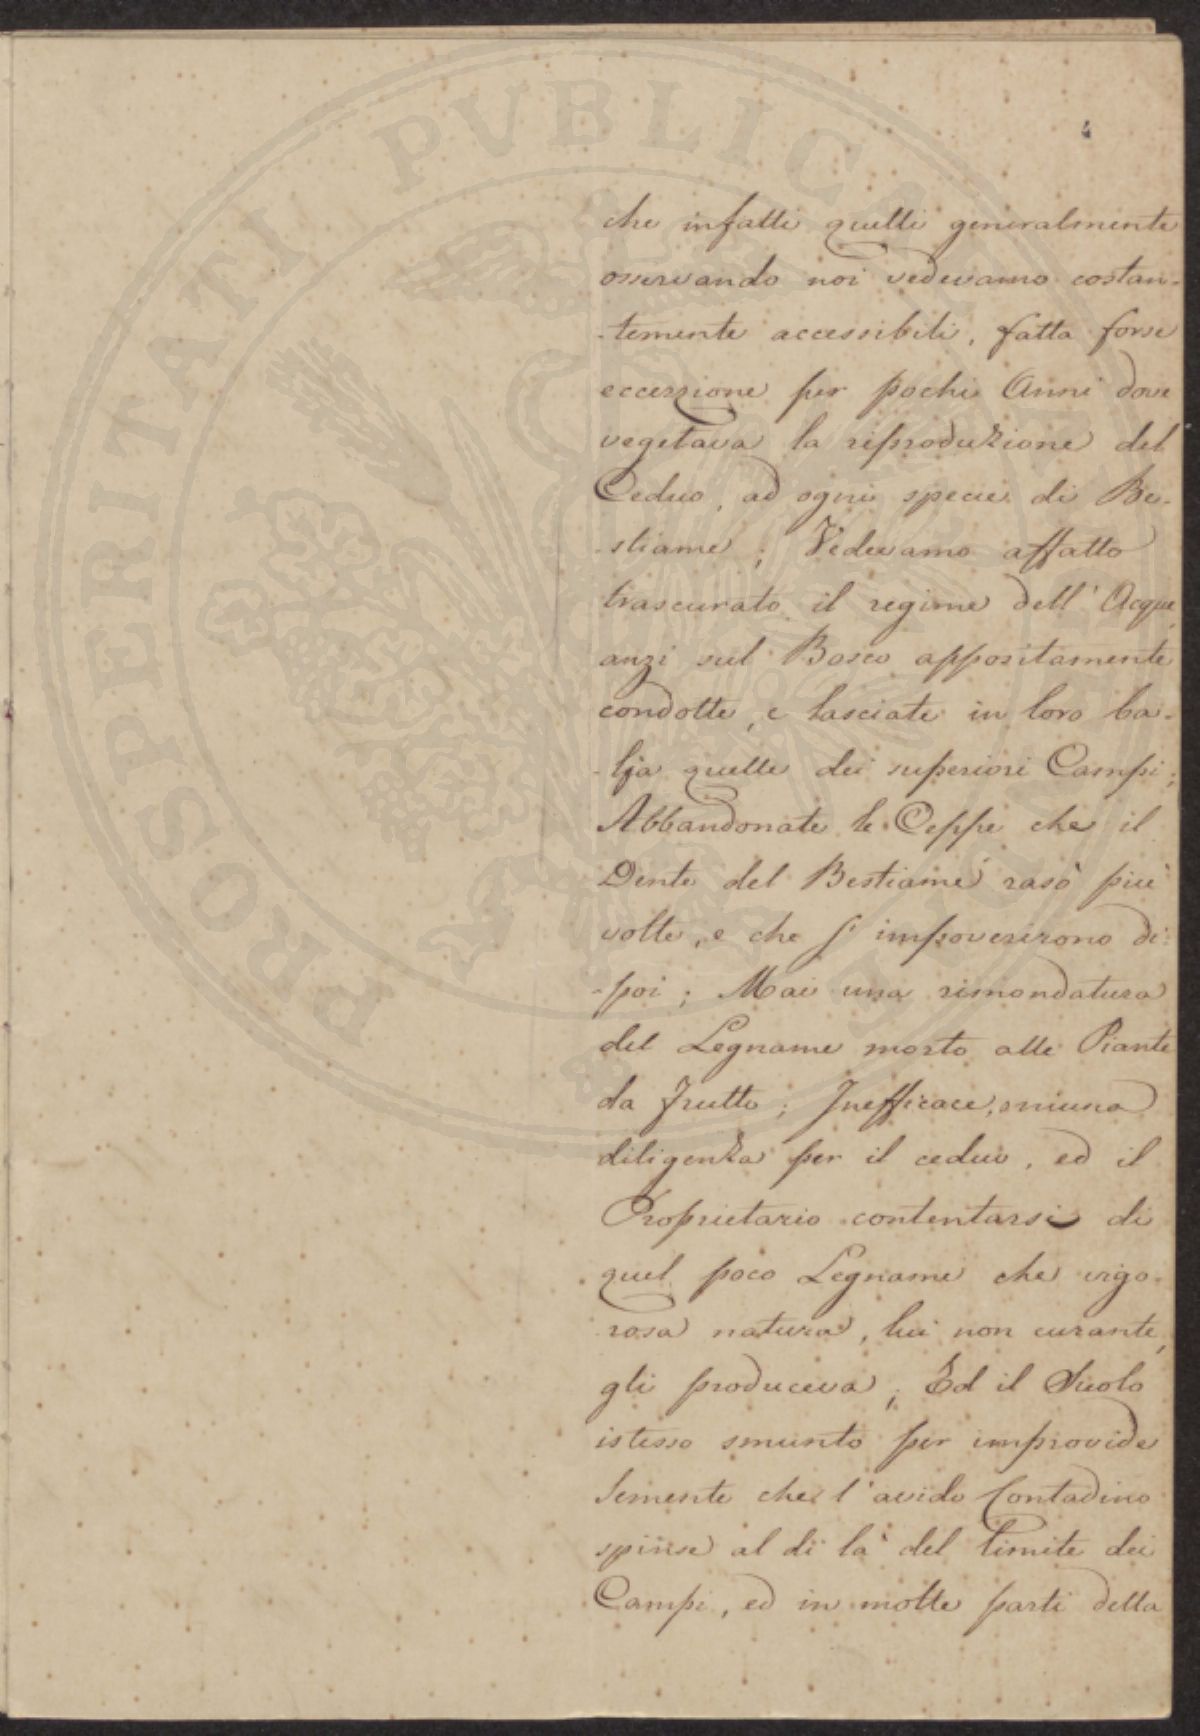 4
che infatti quelli generalmente
osservando noi vedevamo costan-
-temente accessibili, fatta forse
eccezzione per pochi Anni dove
vegetava la riproduzione del
Ceduo, ad ogni specie di Be-
-stiame; Vedevamo affatto
trascurato il regime dell' Acque
anzi sul Bosco appositamente
condotte, e lasciate in loro ba-
-lja quelle dei superiori Campi;
Abbandonate le Ceppe che il
Dente del Bestiame rasò più
volte, e che s' impoverirono di-
-poi; Mai una rimondatura
del Legname morto alle Piante
da frutto; Inefficace, o niuna
diligenza per il ceduo, ed il
Proprietario contentarsi di
quel poco Legname che vigo-
rosa natura, lui non curante,
gli produceva; Ed il Suolo
istesso smunto per improvide
Semente che l'avido Contadino
spinse al di la' del limite dei
Campi, ed in molte parti della
PROSPERITATI PUBLICAE